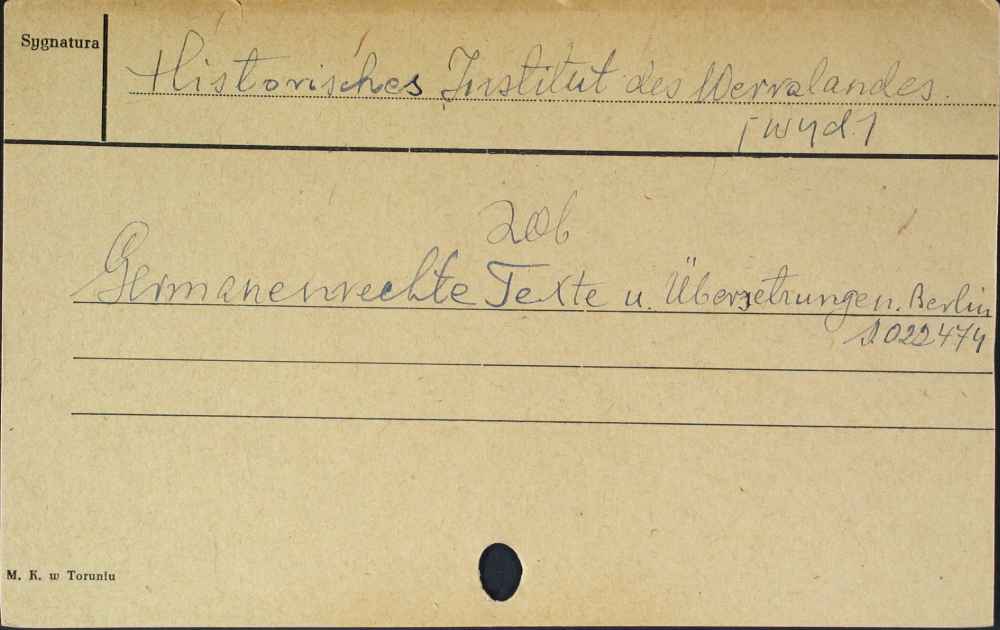 Sygnatura
Historisches Institut des Werralandes
[wyd.]
zob
Germanenrechte Texte u. Übersetzungen. Berlin
022474
M. K. w Toruniu